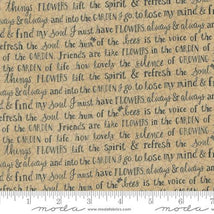 Things. FLOWERS lift the Spirit & refresh the Soul
& always and into the GARDEN I go to lose my mind &
& find my Soul I must have FLOWERS always & always and
refresh the Soul the hum of the bees is the voice of the
the GARDEN. Friends are like FLOWERS in the GARDEN
GARDEN of life how lovely the silence of GROWING
Things. FLOWERS lift the Spirit & refresh the Soul
& always and into the GARDEN I go to lose my mind &
& find my Soul I must have FLOWERS always & always and
refresh the Soul the hum of the bees is the voice of the
in the GARDEN. Friends are like FLOWERS in the GARDEN
GARDEN of life how lovely the silence of GROWING
Things. FLOWERS lift the Spirit & refresh the Soul
always & always and into the GARDEN I go to lose my mind &
& find my Soul I must have FLOWERS always & always
refresh the Soul the hum of the bees is the voice of
1 2 3 4 5 6
moda
www.modafabrics.com